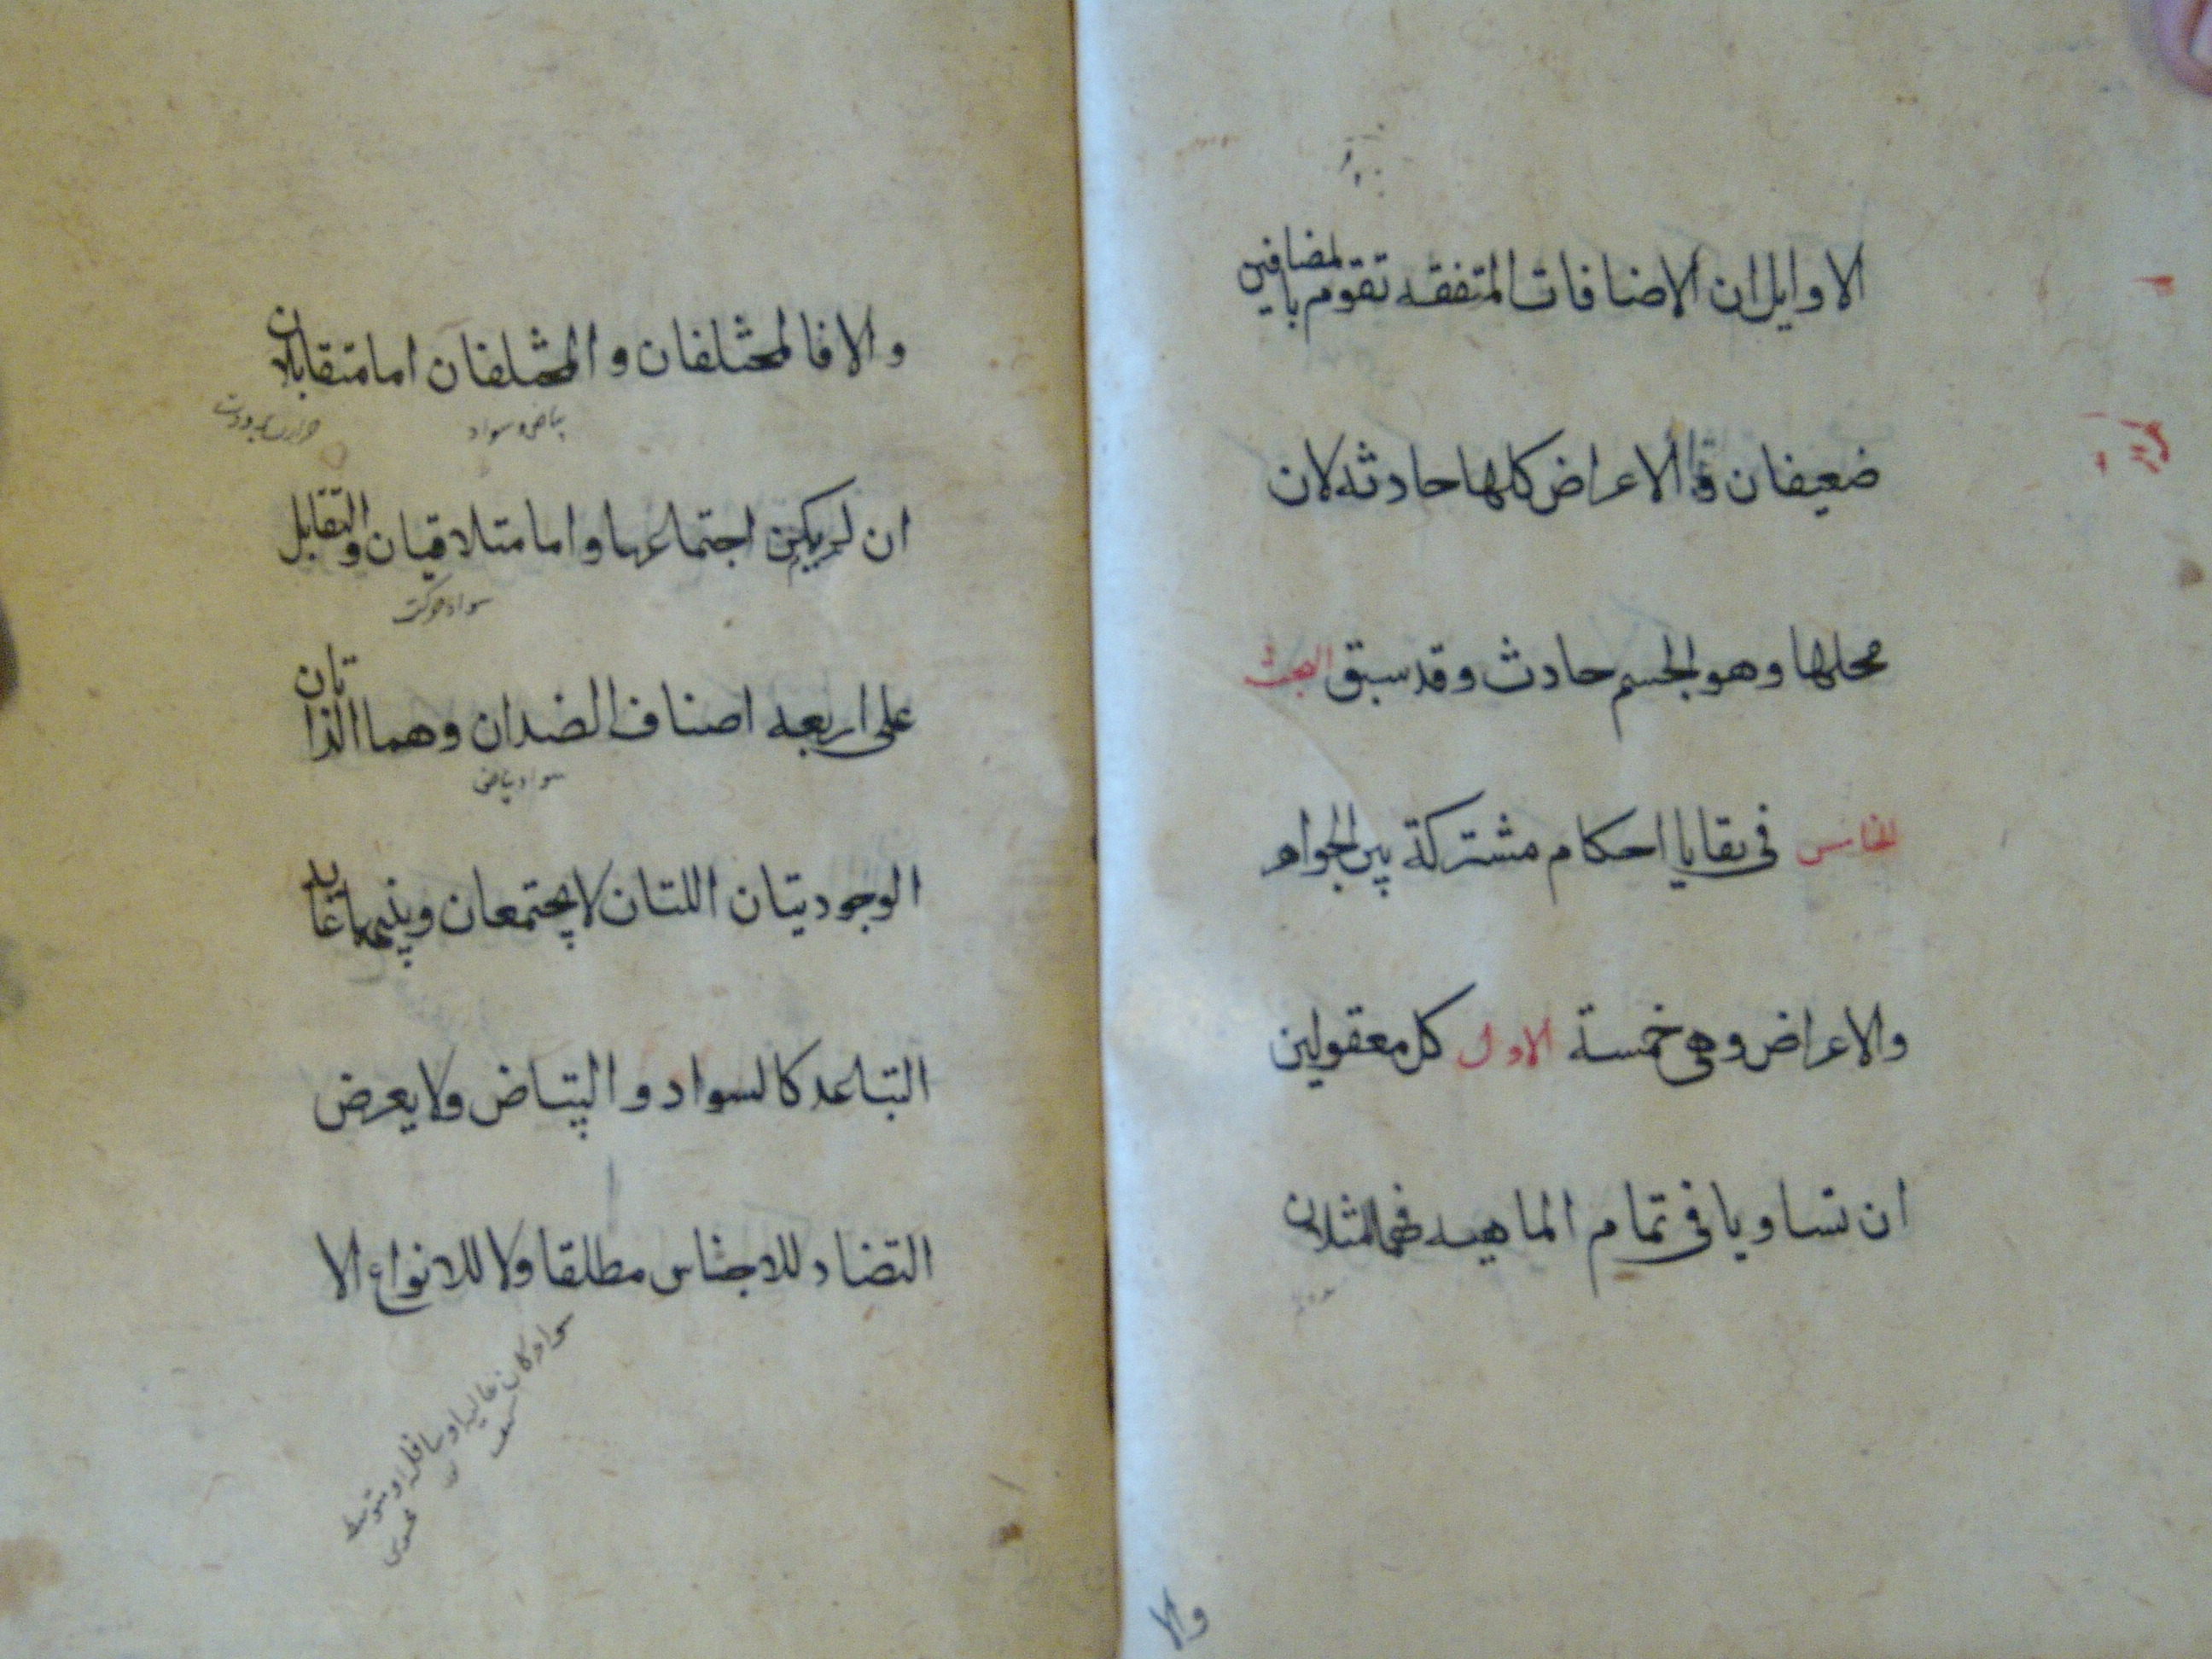 الاوايل ان الاضافات المتفقه تقوم بالمضافين
ضعيفان و الاعراض كلها حادثه لان
محلها وهو الجسم حادث وقد سبق البحث
الخامس فى بقايا احكام مشتركة بين الجواهر
والاعراض وهى خمسة الاول كل معقولين
ان تساويا فى تمام الماهيه فهما المثلان
والا
والا فالمختلفان و المختلفان اما متقابلان
بياض و سواد
حرارت برودت
ان لم يمكن اجتماعهما واما متلاقيان والتقابل
سواد حركت
على اربعه اصناف الضدان وهما الذاتان
سواد بياض
الوجوديتان اللتان لا يجتمعان وبينهما غاية
التباعد كالسواد و البياض ولا يعرض
التضاد للاجناس مطلقا ولا للانواع الا
سواء كان عاليا او سافلا او متوسط